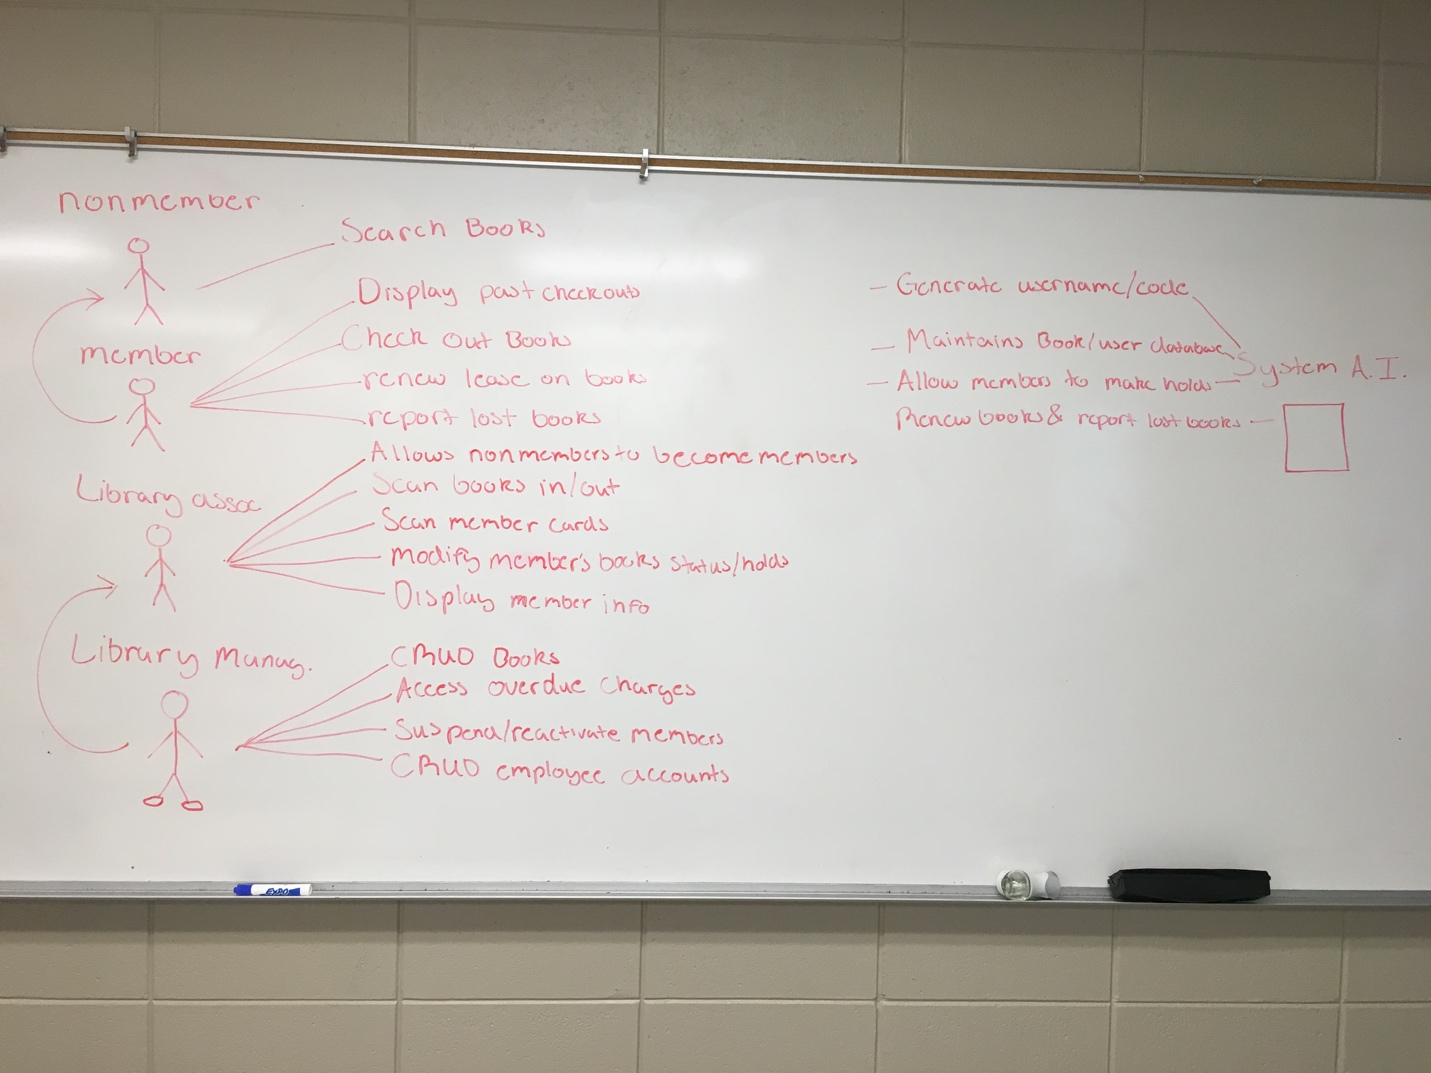 nonmember
Search Books
Display past checkouts
Check Out Books
member
renew lease on books
report lost books
Allows nonmembers to become members
Library assoc
Scan books in/out
Scan member cards
Modify member's books status/holds
Display member info
Library Manag.
CRUD Books
Access overdue charges
Suspend/reactivate members
CRUD employee accounts
- Generate username/code
- Maintains Book/user database
System A.I.
- Allow members to make holds
Renew books & report lost books
EXPO